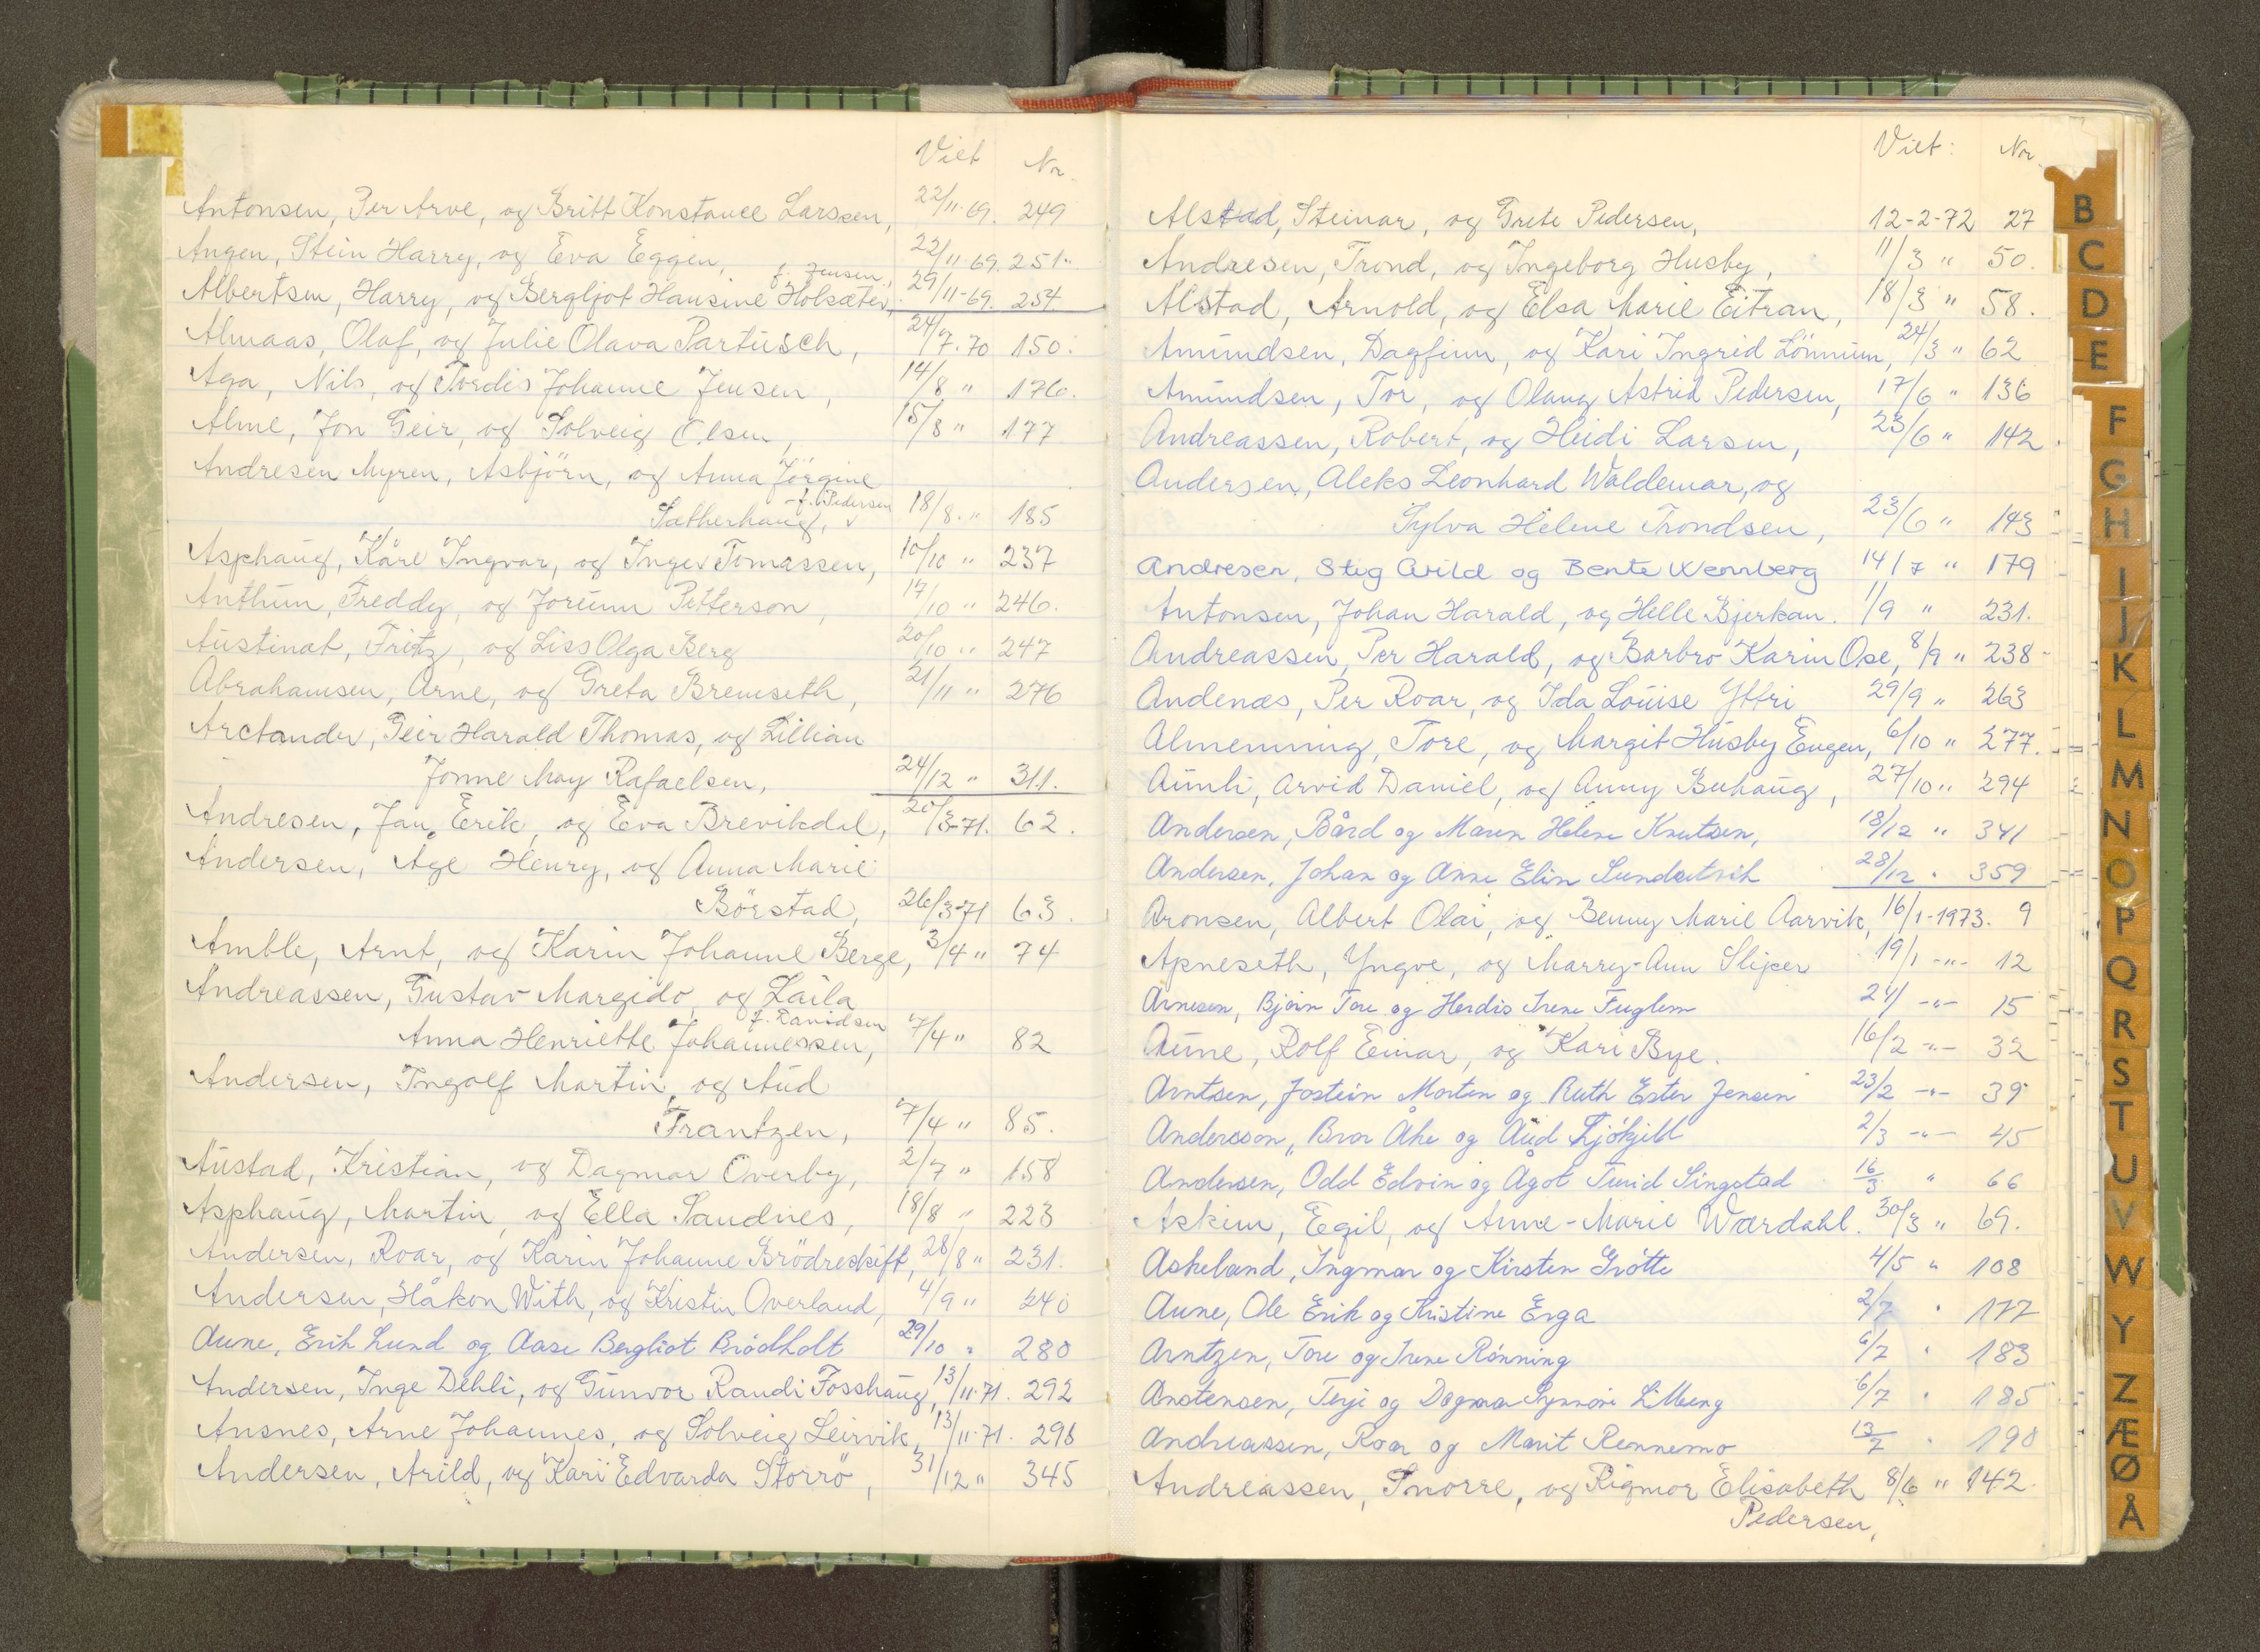 Viet Nr.
Antonsen, Per Arve, og Britt Konstance Larssen, 22/11-69. 249
Angen, Stein Harry, og Eva Eggen, 22/11-69. 251.
f. Jensen
Albertsen, Harry, og Bergljot Hansine Holsæter, 29/11-69. 254.
Almaas, Olaf, og Julie Olava Partüsch, 24/7.70 150.
Aga, Nils, og Tordis Johanne Jensen, 14/8 " 176.
Alme, Jon Geir, og Solveig Olsen, 15/8 " 177
Andresen Myren, Asbjörn, og Anna Jörgine
f. Pedersen
Sætherhaug, 18/8. " 185
Asphaug, Kåre Ingvar, og Inger Tomassen, 10/10 " 237
Anthun, Freddy, og Jorunn Petterson, 17/10 " 246.
Austinat, Fritz, og Liss Olga Berg 20/10 " 247
Abrahamsen, Arne, og Greta Bremseth, 21/11 " 276
Arctander, Geir Harald Thomas, og Lillian
Jonne May Rafaelsen, 24/12 " 311.
Andresen, Jan Erik, og Eva Brevikdal, 20/3-71. 62.
Andersen, Åge Henry, og Anna Marie
Börstad, 26/3-71 63.
Amble, Arnt, og Karin Johanne Berge, 3/4 " 74
Andreassen, Gustav Margido, og Laila
f. Davidsen
Anna Henriette Johannessen, 7/4 " 82
Andersen, Ingolf Martin, og Aud
Frantzen, 7/4 " 85.
Austad, Kristian, og Dagmar Overby, 2/7 " 158
Asphaug, Martin, og Ella Sandnes, 18/8 " 223
Andersen, Roar, og Karin Johanne Brödreskift, 28/8 " 231.
Andersen, Håkon With, og Kristin Overland, 4/9 " 240
Aune, Erik Lund og Aase Bergliot Brødholt 29/10 " 280
Andersen, Inge Dehli, og Gunvor Randi Fosshaug, 13/11-71. 292
Ansnes, Arne Johannes, og Solveig Leirvik, 13/11-71. 296
Andersen, Arild, og Kari Edvarda Storrö, 31/12 " 345
Viet: Nr.
Alstad, Steinar, og Grete Pedersen, 12-2-72 27
Andresen, Trond, og Ingeborg Husby, 11/3 " 50.
Alstad, Arnold, og Elsa Marie Eitran, 18/3 " 58.
Amundsen, Dagfinn, og Kari Ingrid Lönnum, 24/3 " 62
Amundsen, Tor, og Olaug Astrid Pedersen, 17/6 " 136
Andreassen, Robert, og Heidi Larsen, 23/6 " 142.
Andersen, Aleks Leonhard Waldemar, og
Sylva Helene Trondsen, 23/6 " 143
Andresen, Stig Arild og Bente Wennberg 14/7 " 179
Antonsen, Johan Harald, og Helle Bjerkan. 1/9 " 231.
Andreassen, Per Harald, og Barbro Karin Ose, 8/9 " 238
Andenæs, Per Roar, og Ida Louise Yttri 29/9 " 263
Almenning, Tore, og Margit Husby Eugen, 6/10 " 277.
Aunli, Arvid Daniel, og Anny Buhaug, 27/10 " 294
Andersen, Bård og Maren Helene Knutsen, 18/12 " 341
Andersen, Johan og Anne Elin 28/12 " 359
Aronsen, Albert Olai, og Benny Marie Aarvik, 16/1-1973. 9
Apneseth, Yngve, og Marry-Ann Sliper 19/1 -"- 12
Arnesen, Bjørn Tore og Herdis Irene Fuglem 21/ -"- 15
Aune, Rolf Einar, og Kari Bye. 16/2 -"- 32
Arntsen, Jostein Morten og Ruth Ester Jensen 23/2 -"- 39
Andersson, Bror Åke og Aud 2/3 -"- 45
Andersen, Odd Edvin og Ågot Turid Singstad 16/3 " 66
Askim, Egil, og Anne-Marie Wærdahl. 30/3 " 69.
Askeland, Ingmar og Kirsten Grøtte 4/5 " 108
Aune, Ole Erik og Kristine Erga 2/7 " 177
Arntzen, Tore og Irene Rønning 6/7 " 183
Anstensen, Terje og Dagmar Synnøve 6/7 " 185
Andreassen, Roar og Marit Rennemo 13/7 " 190
Andreassen, Snorre, og Rigmor Elisabeth 8/6 " 142.
Pedersen,
B
C
D
E
F
G
H
I
J
K
L
M
N
O
P
Q
R
S
T
U
V
W
Y
Z
Æ
Ø
Å